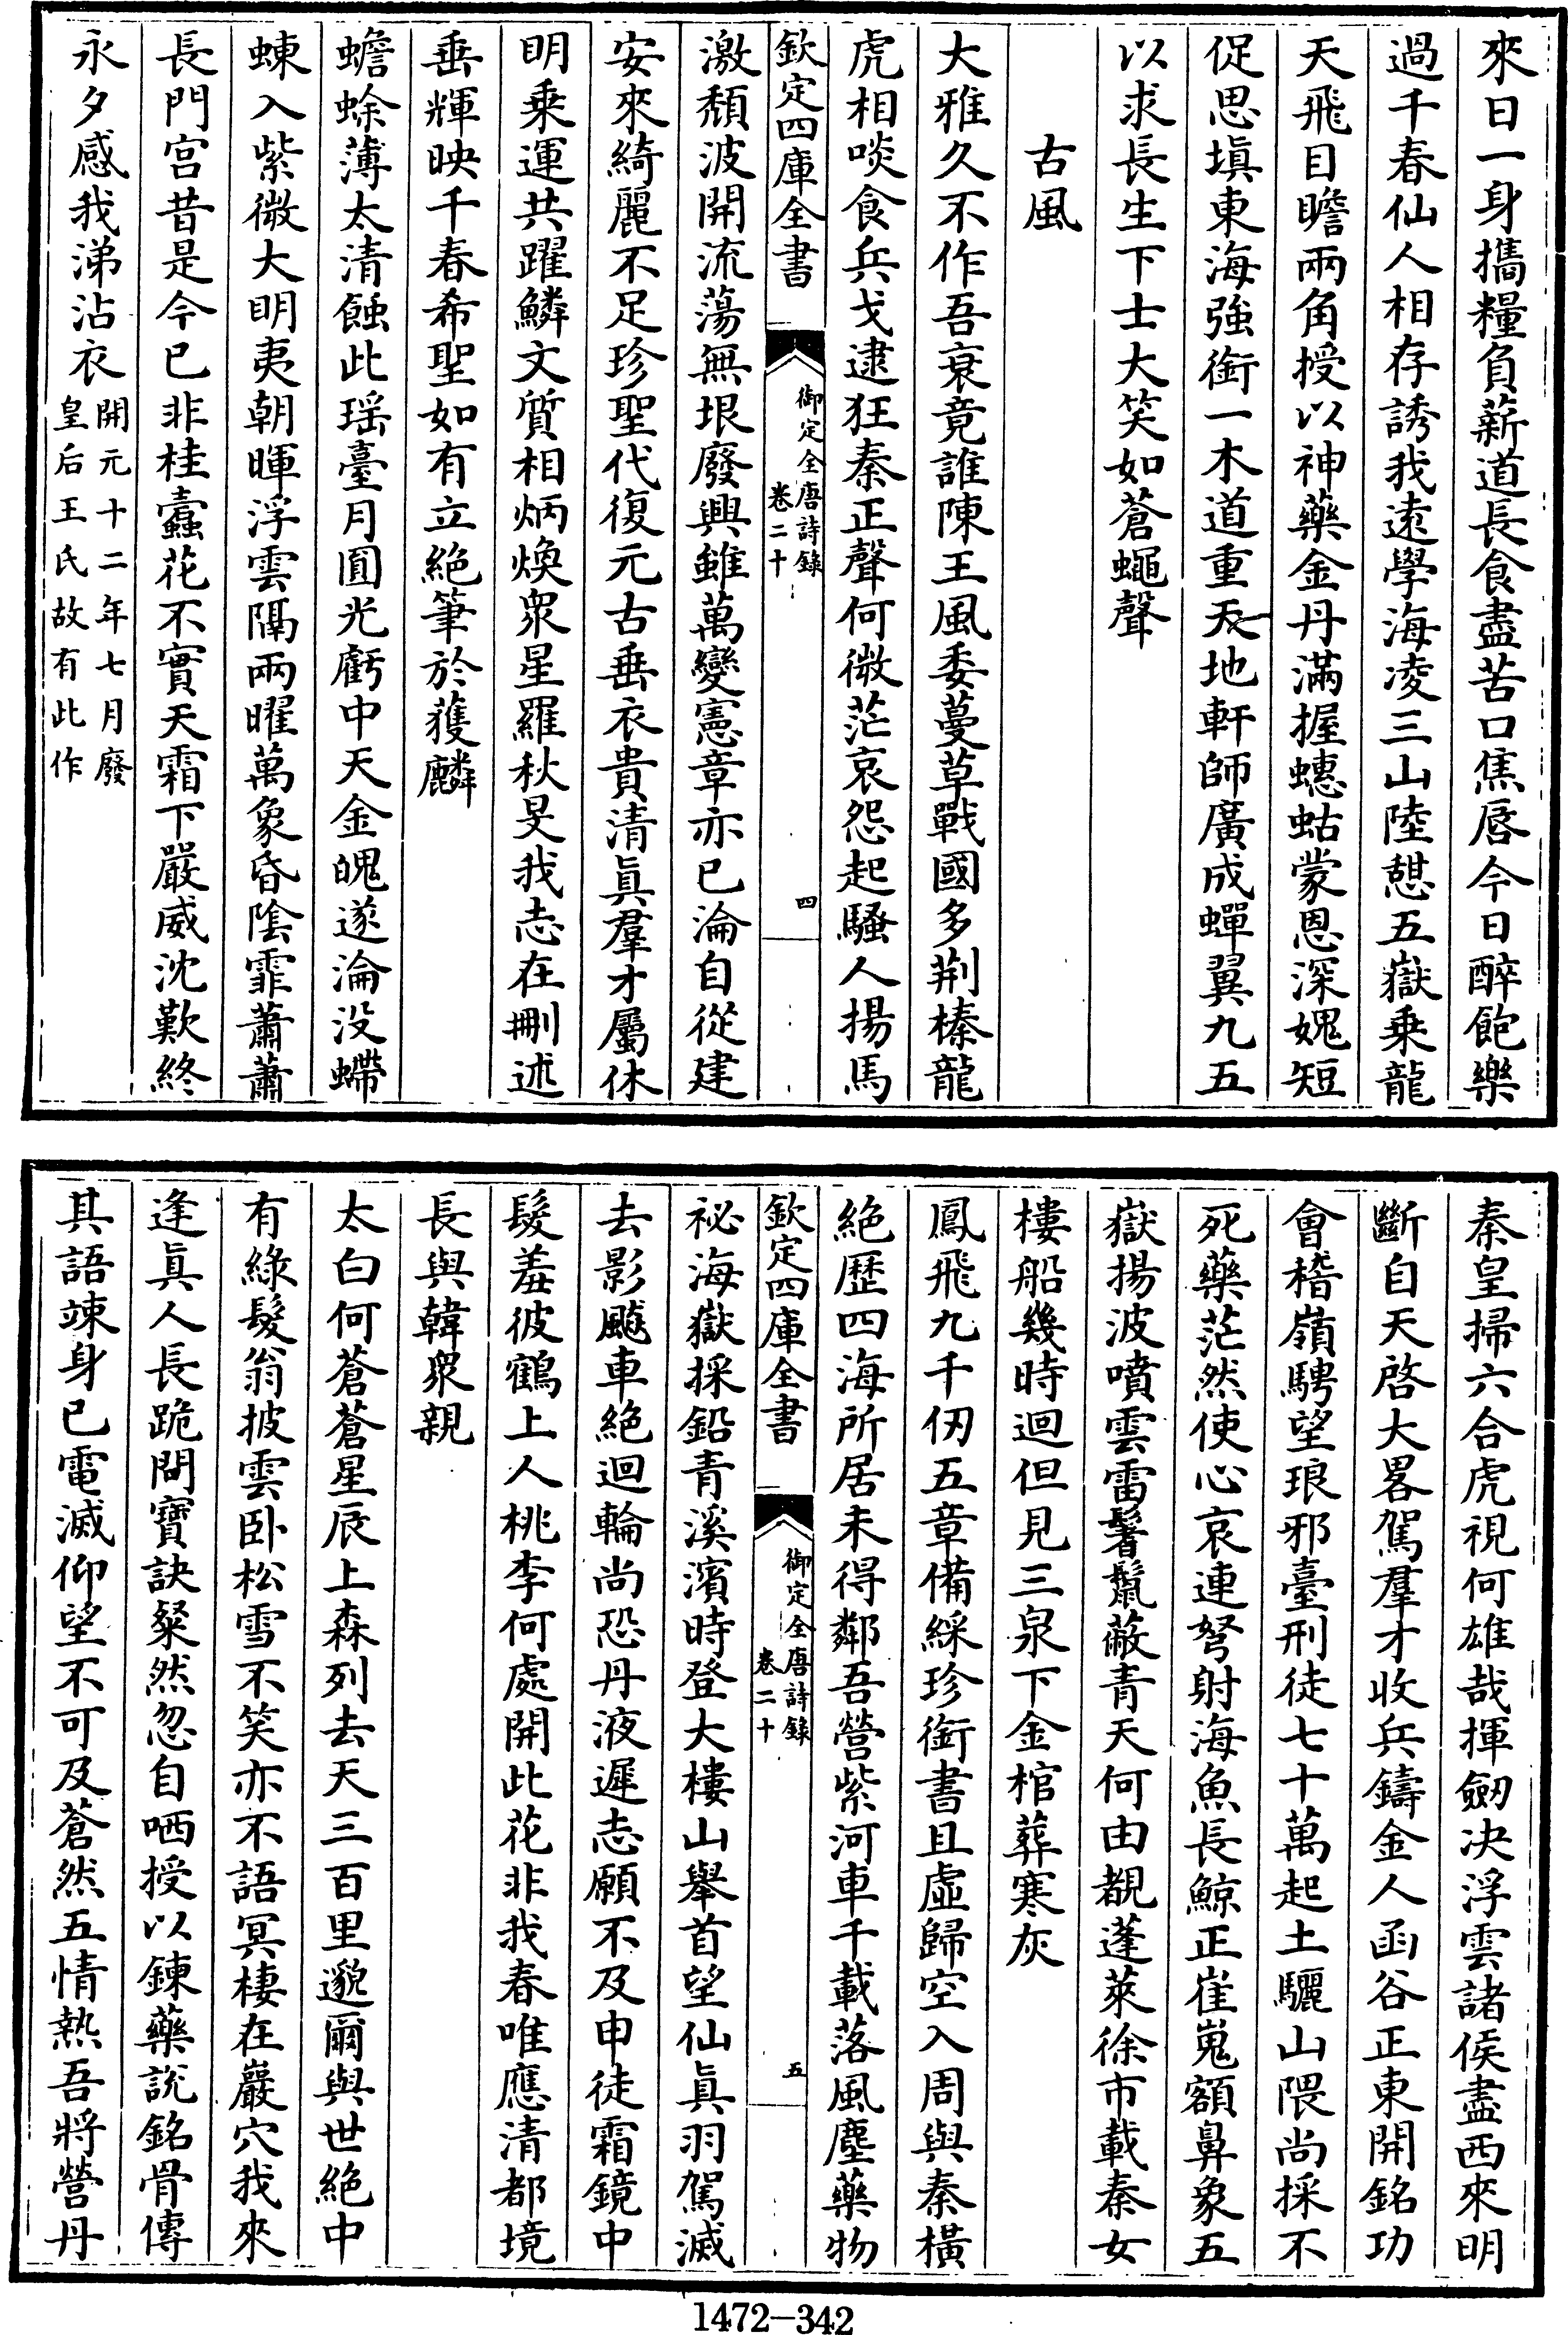 來日一身攜糧負薪道長食盡苦口焦唇今日醉飽樂
過千春仙人相存誘我遠學海凌三山陸憇五嶽乗龍
天飛目瞻兩角授以神藥金丹滿握蟪蛄蒙恩深媿短
促思塡東海強銜一木道重天地軒師廣成蟬翼九五
以求長生下士大笑如蒼蠅聲
古風
大雅久不作吾衰竟誰陳王風委蔓草戰國多荆榛龍
虎相啖食兵戈逮狂秦正聲何微茫哀怨起騷人揚馬
欽定四庫全書
御定全唐詩録
卷二十
四
激頽波開流蕩無垠廢興雖萬變憲章亦已淪自從建
安來綺麗不足珍聖代復元古垂衣貴清眞羣才屬休
明乗運共躍鱗文質相炳煥衆星羅秋旻我志在刪述
垂輝映千春希聖如有立絶筆於獲麟
蟾蜍薄太清蝕此瑶臺月圓光虧中天金魄遂淪没螮
蝀入紫微大明夷朝暉浮雲隔兩曜萬象昏陰霏蕭蕭
長門宫昔是今已非桂蠹花不實天霜下嚴威沈歎終
永夕感我涕沾衣開元十二年七月廢
皇后王氏故有此作
秦皇掃六合虎視何雄哉揮劒决浮雲諸侯盡西來明
斷自天啓大畧駕羣才收兵鑄金人函谷正東開銘功
會稽嶺騁望琅邪臺刑徒七十萬起土驪山隈尚採不
死藥茫然使心哀連弩射海魚長鯨正崔嵬額鼻象五
嶽揚波噴雲雷鬐鬣蔽青天何由覩蓬萊徐市載秦女
樓船幾時迴但見三泉下金棺葬寒灰
鳳飛九千仞五章備綵珍銜書且虛歸空入周與秦横
絶歴四海所居未得鄰吾營紫河車千載落風塵藥物
欽定四庫全書
御定全唐詩録
卷二十
五
祕海嶽採鉛青溪濱時登大樓山舉首望仙眞羽駕滅
去影飇車絶迴輪尚恐丹液遲志願不及申徒霜鏡中
髮羞彼鶴上人桃李何處開此花非我春唯應清都境
長與韓衆親
太白何蒼蒼星辰上森列去天三百里邈爾與世絶中
有綠髮翁披雲卧松雪不笑亦不語冥棲在巖穴我來
逢眞人長跪問寶訣粲然忽自哂授以鍊藥說銘骨傳
其語竦身已電滅仰望不可及蒼然五情熱吾將營丹
1472-342